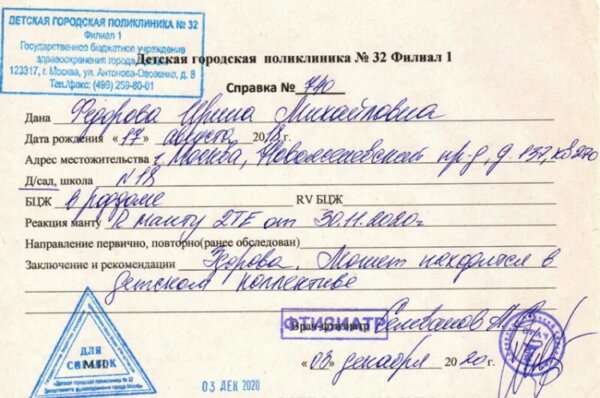 ДЕТСКАЯ ГОРОДСКАЯ ПОЛИКЛИНИКА № 32
Филиал 1
Государственное бюджетное учреждение
здравоохранения города
123317, г. Москва, ул. Антонова-Овсеенко, д. 8
Тел./факс: (499) 259-60-01
Детская городская поликлиника № 32 Филиал 1
Справка № 740
Дана Федорова Ирина Михайловна
Дата рождения «17» августа г.
Адрес местожительства г. Москва, пр-д, д. 137, кв 270
Д/сад, школа N 18
БЦЖ в роддоме RV БЦЖ
Реакция манту R манту 2ТЕ от 30.11.2020г
Направление первично, повторно(ранее обследован)
Заключение и рекомендации Здорова. Может находится в
детском коллективе
ФТИЗИАТР
Врач-фтизиатр Селеванов
«03» декабря 2020г.
ДЛЯ
СПРАВОК
М.П.
«Детская городская поликлиника № 32
Департамента здравоохранения города Москвы»
03 ДЕК 2020